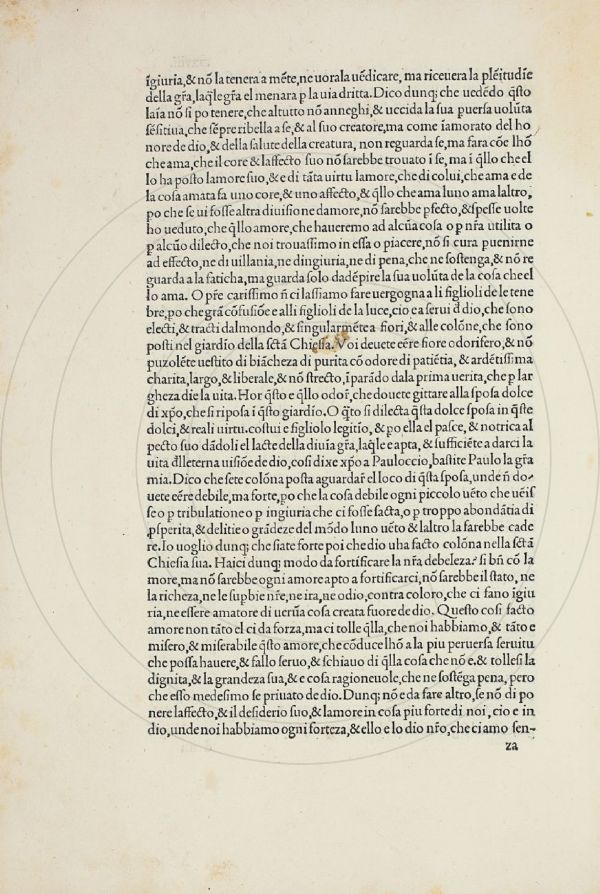 ĩgiuria,& nõ la tenera a mẽte,ne uorala uẽdicare, ma riceuera la plẽitudĩe
della gr̃a,laq̃le gr̃a el menara p la uia dritta. Dico dunq; che uedẽdo q̃sto
laĩa nõ si po tenere,che altutto nõ anneghi,& uccida la sua puersa uolũta
sẽsitiua,che sẽpre ribella a se,& al suo creatore,ma come ĩamorato del ho
nore de dio,& della salute della creatura, non reguarda se,ma fara cõe lhõ
che ama,che il core & laffecto suo nõ sarebbe trouato ĩ se, ma ĩ q̃llo che el
lo ha posto lamore suo,& e di tãta uirtu lamore,che di colui,che ama e de
la cosa amata fa uno core,& uno affecto,& q̃llo che ama luno ama laltro,
po che se ui fosse altra diuisione damore,nõ sarebbe pfecto,& spesse uolte
ho ueduto,che q̃llo amore,che haueremo ad alcũa cosa o p nr̃a utilita o
p alcũo dilecto,che noi trouassimo in essa o piacere,nõ si cura puenirne
ad effecto,ne di uillania,ne dingiuria,ne di pena,che ne sostenga,& nõ re
guarda a la faticha,ma guarda solo dadẽpire la sua uolũta de la cosa che el
lo ama. O pr̃e carissimo ñ ci lassiamo fare uergogna a li figlioli de le tene
bre,po che grã cõfusiõe e alli figlioli de la luce,cio e a serui d̃ dio,che sono
electi,& tracti dalmondo,& singularmẽte a fiori,& alle colõne,che sono
posti nel giardĩo della sctã Chiesia. Voi deuete eẽre fiore odorifero,& nõ
puzolẽte uestito di biãcheza di purita cõ odore di patiẽtia,& ardẽtissima
charita,largo,& liberale,& nõ strecto,ĩparãdo dala prima uerita,che p lar
gheza die la uita. Hor q̃sto e q̃llo odor̃,che douete gittare alla sposa dolce
di xp̃o,che si riposa ĩ q̃sto giardĩo. O q̃to si dilecta q̃sta dolce sposa in q̃ste
dolci,& reali uirtu.costui e figliolo legitĩo,& po ella el pasce,& notrica al
pecto suo dãdoli el lacte della diuĩa gr̃a,laq̃le e apta, & sufficiẽte a darci la
uita d̃lleterna uisiõe de dio,cosi dixe xp̃o a Pauloccio,bastite Paulo la gr̃a
mia. Dico che sete colõna posta aguardar̃ el loco di q̃sta sposa,unde ñ do-
uete eẽre debile,ma forte,po che la cosa debile ogni piccolo uẽto che ueis
se o p tribulatione o p ingiuria che ci fosse facta,o p troppo abondãtia di
psperita,& delitie o grãdeze del mõdo luno uẽto & laltro la farebbe cade
re.Io uoglio dunq; che siate forte poi che dio uha facto colõna nella sctã
Chiesia sua. Haici dunq; modo da fortificare la nr̃a debeleza? si bñ cõ la
more,ma nõ sarebbe ogni amore apto a fortificarci,nõ sarebbe il stato, ne
la richeza,ne le supbie nr̃e,ne ira,ne odio,contra coloro,che ci fano igiu
ria,ne essere amatore di ueruã cosa creata fuore de dio. Questo cosi facto
amore non tãto el ci da forza,ma ci tolle q̃lla,che noi habbiamo,& tãto e
misero,& miserabile q̃sto amore,che cõduce lhõ a la piu peruersa seruitu
che possa hauere,& fallo seruo,& schiauo di q̃lla cosa che nõ e.& tollesi la
dignita,& la grandeza sua,& e cosa ragioneuole,che ne sostẽga pena, pero
che esso medesimo se priuato de dio. Dunq; nõ e da fare altro,se nõ di po
nere laffecto,& il desiderio suo,& lamore in cosa piu forte di noi , cio e in
dio,unde noi habbiamo ogni forteza,& ello e lo dio nr̃o,che ci amo sen-
za